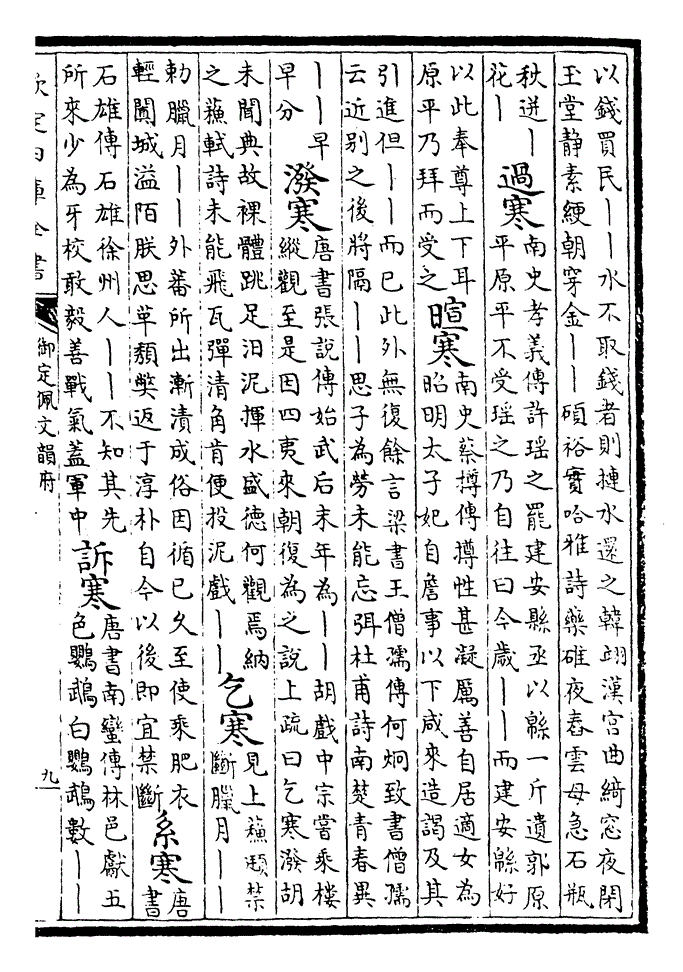 以錢買民｜｜水不取錢者則摙水還之韓翃漢宮曲綺窓夜閉
玉堂静素綆朝穿金｜｜碩裕實哈雅詩藥碓夜舂雲母急石瓶
秋迸｜
花｜
過寒
南史孝義傳許瑶之罷建安縣丞以緜一斤遺郭原
平原平不受瑶之乃自往曰今歲｜｜而建安緜好
以此奉尊上下耳
原平乃拜而受之
暄寒
南史蔡撙傳撙性甚凝厲善自居適女為
昭明太子妃自詹事以下咸來造謁及其
引進但｜｜而已此外無復餘言梁書王僧孺傳何炯致書僧孺
云近别之後將隔｜｜思子為勞未能忘弭杜甫詩南楚青春異
｜｜早
早分
潑寒
唐書張說傳始武后末年為｜｜胡戲中宗嘗乘樓
縱觀至是因四夷來朝復為之說上疏曰乞寒潑胡
未聞典故裸體跳足汨泥揮水盛德何觀焉納
之蘓軾詩未能飛瓦彈清角肯便投泥戲｜｜
乞寒
見上蘓頲禁
斷臘月｜｜
勅臘月｜｜外蕃所出漸漬成俗因循已久至使乘肥衣
輕闐城溢陌朕思革頹弊返于淳朴自今以後即宜禁斷
系寒
唐
書
石雄傳石雄徐州人｜｜不知其先
所來少為牙校敢毅善戰氣蓋軍中
訴寒
唐書南蠻傳林邑獻五
色鸚鵡白鸚鵡數｜｜
欽定四庫全書
御定佩文韻府
九